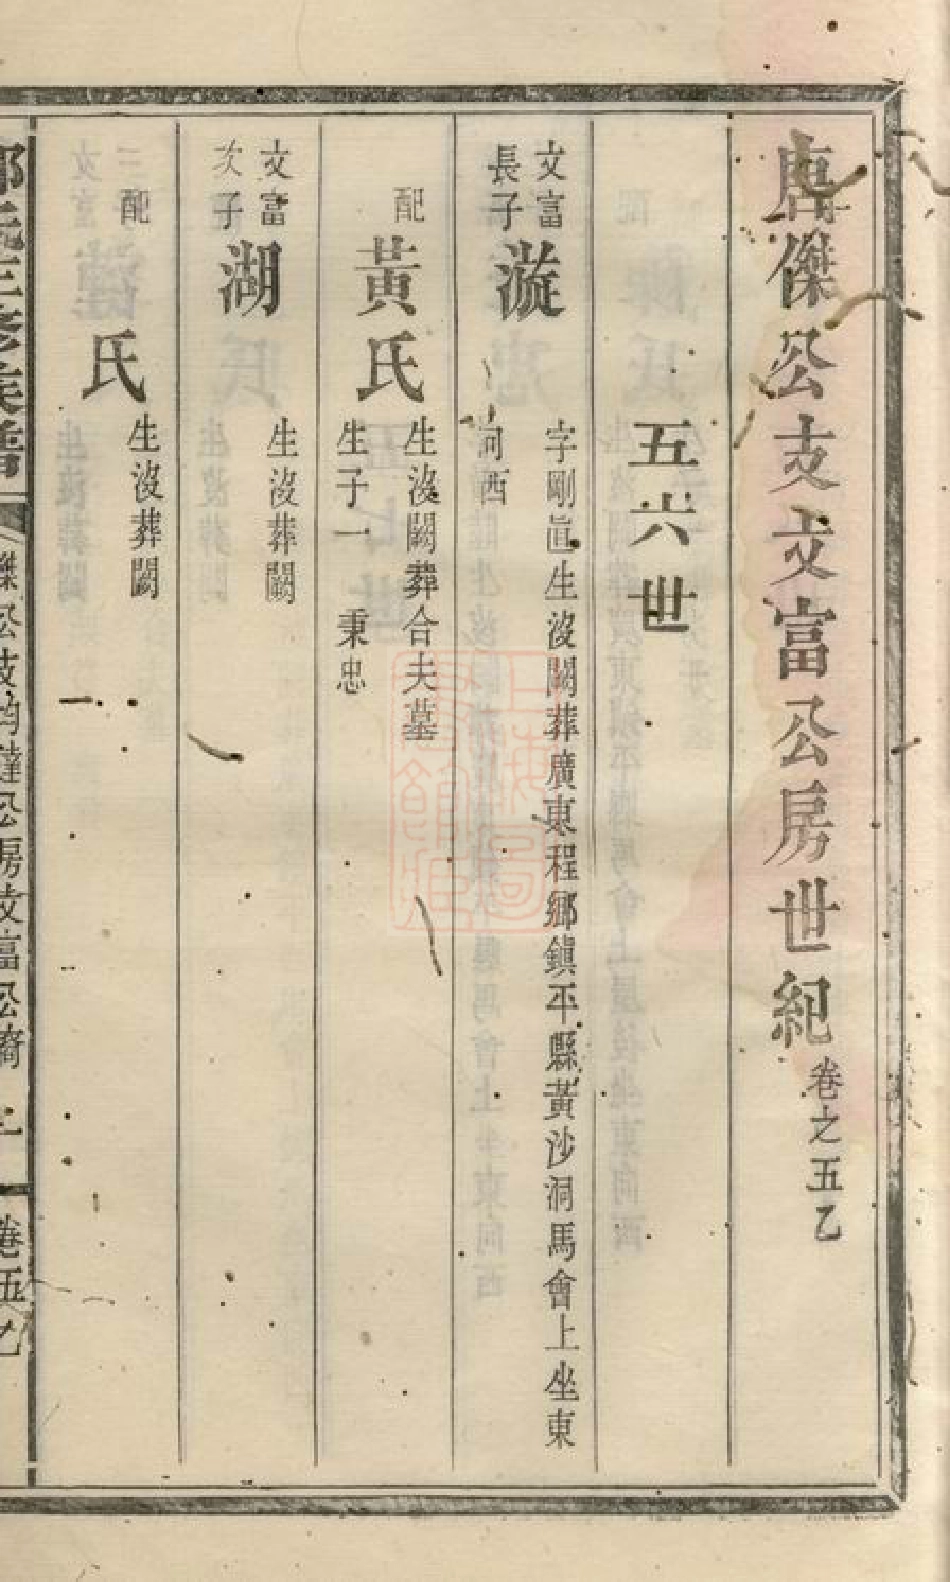 唐傑公支文富公房世紀 卷之五乙
五六世
文富
長子
漩
字剛直生沒闕葬廣東程鄉鎮平縣黃沙洞馬會上坐東
向西
配
黃氏
生沒闕葬合夫墓
生子一 秉忠
文富
次子
湖
生沒葬闕
配
氏
生沒葬闕
修族譜
公房文富公裔
卷五乙